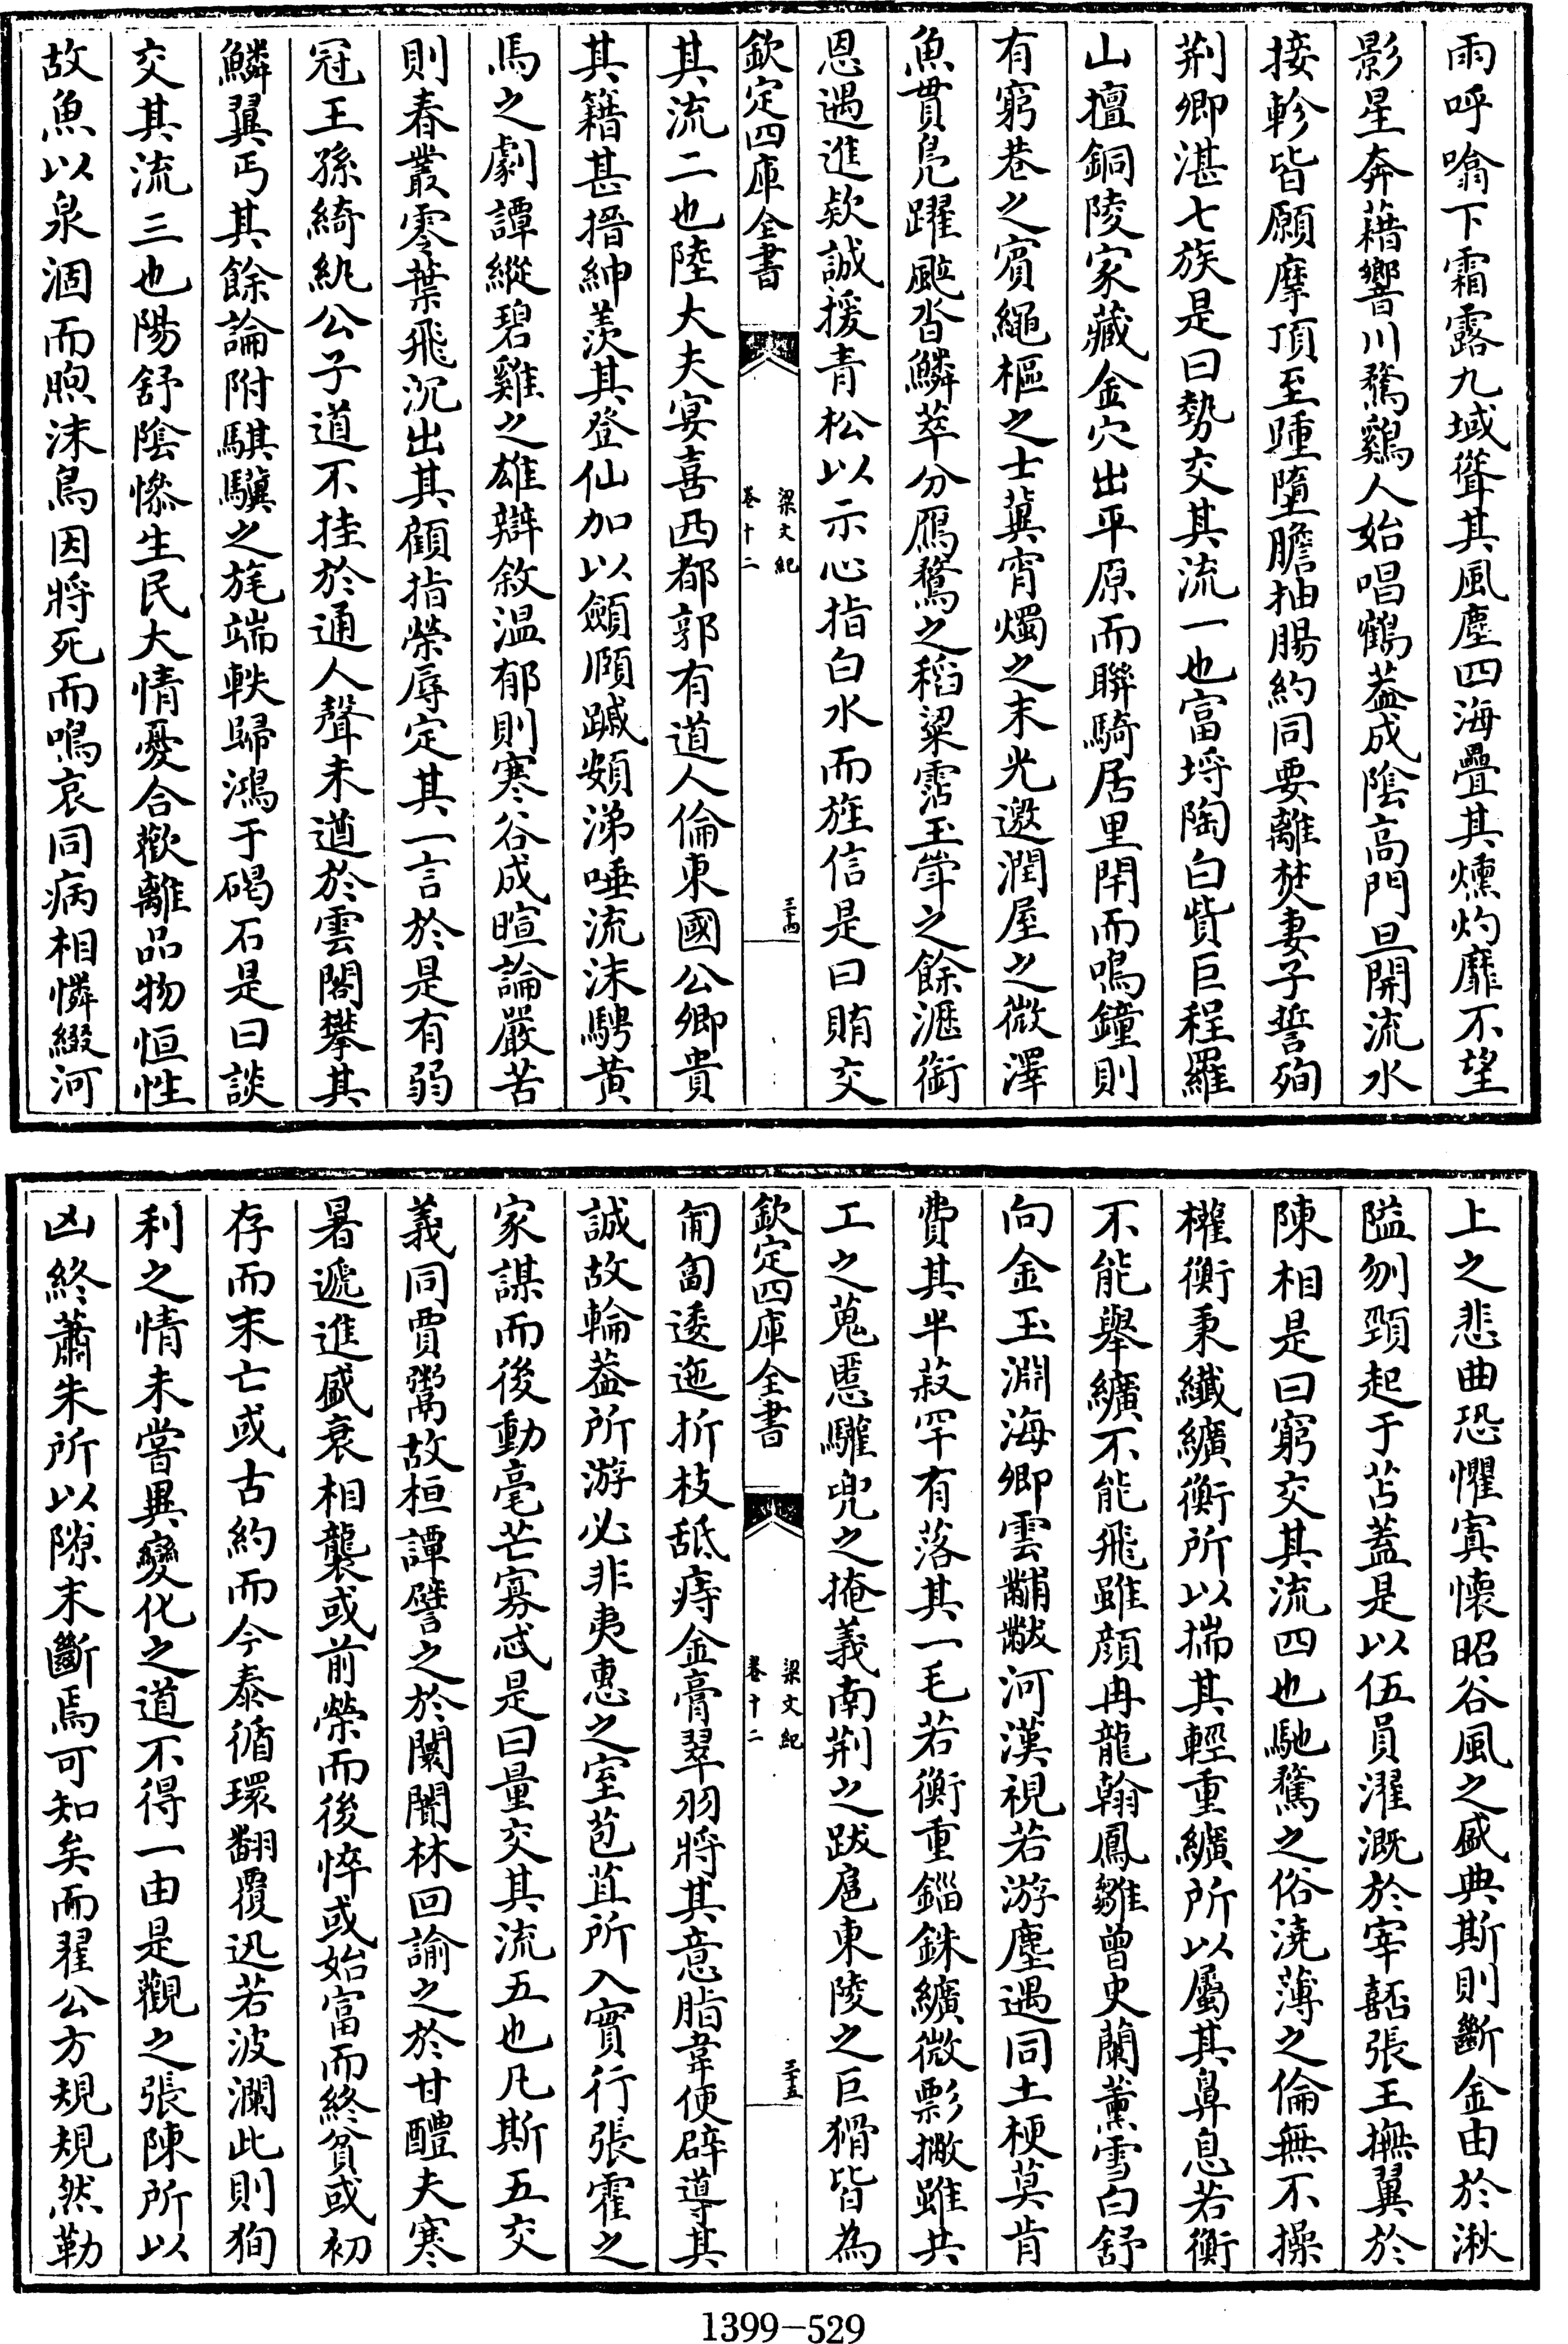 雨呼噏下霜露九域聳其風塵四海疊其燻灼靡不望
影星奔藉響川騖鷄人始唱鶴葢成陰高門旦開流水
接軫皆願摩頂至踵墮膽抽腸約同要離焚妻子誓殉
荆卿湛七族是曰勢交其流一也富埒陶白貲巨程羅
山擅銅陵家藏金穴出平原而聯騎居里閈而鳴鐘則
有窮巷之賓繩樞之士冀宵燭之末光邀潤屋之微澤
魚貫鳧躍颯沓鱗萃分鴈鶩之稻粱霑玉斚之餘瀝銜
恩遇進欵誠援青松以示心指白水而旌信是曰賄交
欽定四庫全書
梁文紀
卷十二
三十四
其流二也陸大夫宴喜西都郭有道人倫東國公卿貴
其籍甚搢紳羡其登仙加以顩頤蹙頞涕唾流沫騁黄
馬之劇譚縱碧雞之雄辯敘温郁則寒谷成暄論嚴苦
則春叢零葉飛沉出其顧指榮辱定其一言於是有弱
冠王孫綺紈公子道不挂於通人聲未遒於雲閣攀其
鱗翼丐其餘論附騏驥之旄端軼歸鴻于碣石是曰談
交其流三也陽舒陰慘生民大情憂合歡離品物恒性
故魚以泉涸而煦沫鳥因將死而鳴哀同病相憐綴河
上之悲曲恐懼寘懷昭谷風之盛典斯則斷金由於湫
隘刎頸起于苫蓋是以伍員濯溉於宰嚭張王撫翼於
陳相是曰窮交其流四也馳騖之俗澆薄之倫無不操
權衡秉纖纊衡所以揣其輕重纊所以屬其鼻息若衡
不能舉纊不能飛雖顔冉龍翰鳳雛曾史蘭薰雪白舒
向金玉淵海卿雲黼黻河漢視若游塵遇同土梗莫肯
費其半菽罕有落其一毛若衡重錙銖纊微影撇雖共
工之蒐慝驩兜之掩義南荆之跋扈東陵之巨猾皆為
欽定四庫全書
梁文紀
卷十二
三十五
匍匐逶迤折枝舐痔金膏翠羽將其意脂韋便辟導其
誠故輪葢所游必非夷惠之室苞苴所入實行張霍之
家謀而後動毫芒寡忒是曰量交其流五也凡斯五交
義同賈鬻故桓譚譬之於闤闠林回諭之於甘醴夫寒
暑遞進盛衰相襲或前榮而後悴或始富而終貧或初
存而末亡或古約而今泰循環翻覆迅若波瀾此則狥
利之情未嘗異變化之道不得一由是觀之張陳所以
凶終蕭朱所以隙末斷焉可知矣而翟公方規規然勒
1399-529